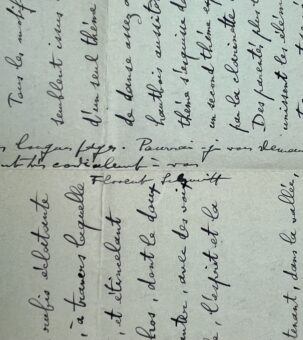 Tous les motifs
semblent issus
d'un seul thème
de danse assez
hautbois aussitôt
thème s'esquisse
un second thème
par la clarinette
Des parentés plus
unissent les élém
longues pages. Pourrai-je vous deman
cordialement à vous
Florent Schmitt
rubis éclatante
, à travers laquelle
, et étincelant
hos, dont le doux
enter, avec des voix
e, l'esprit et la
terent, dans la vallée,